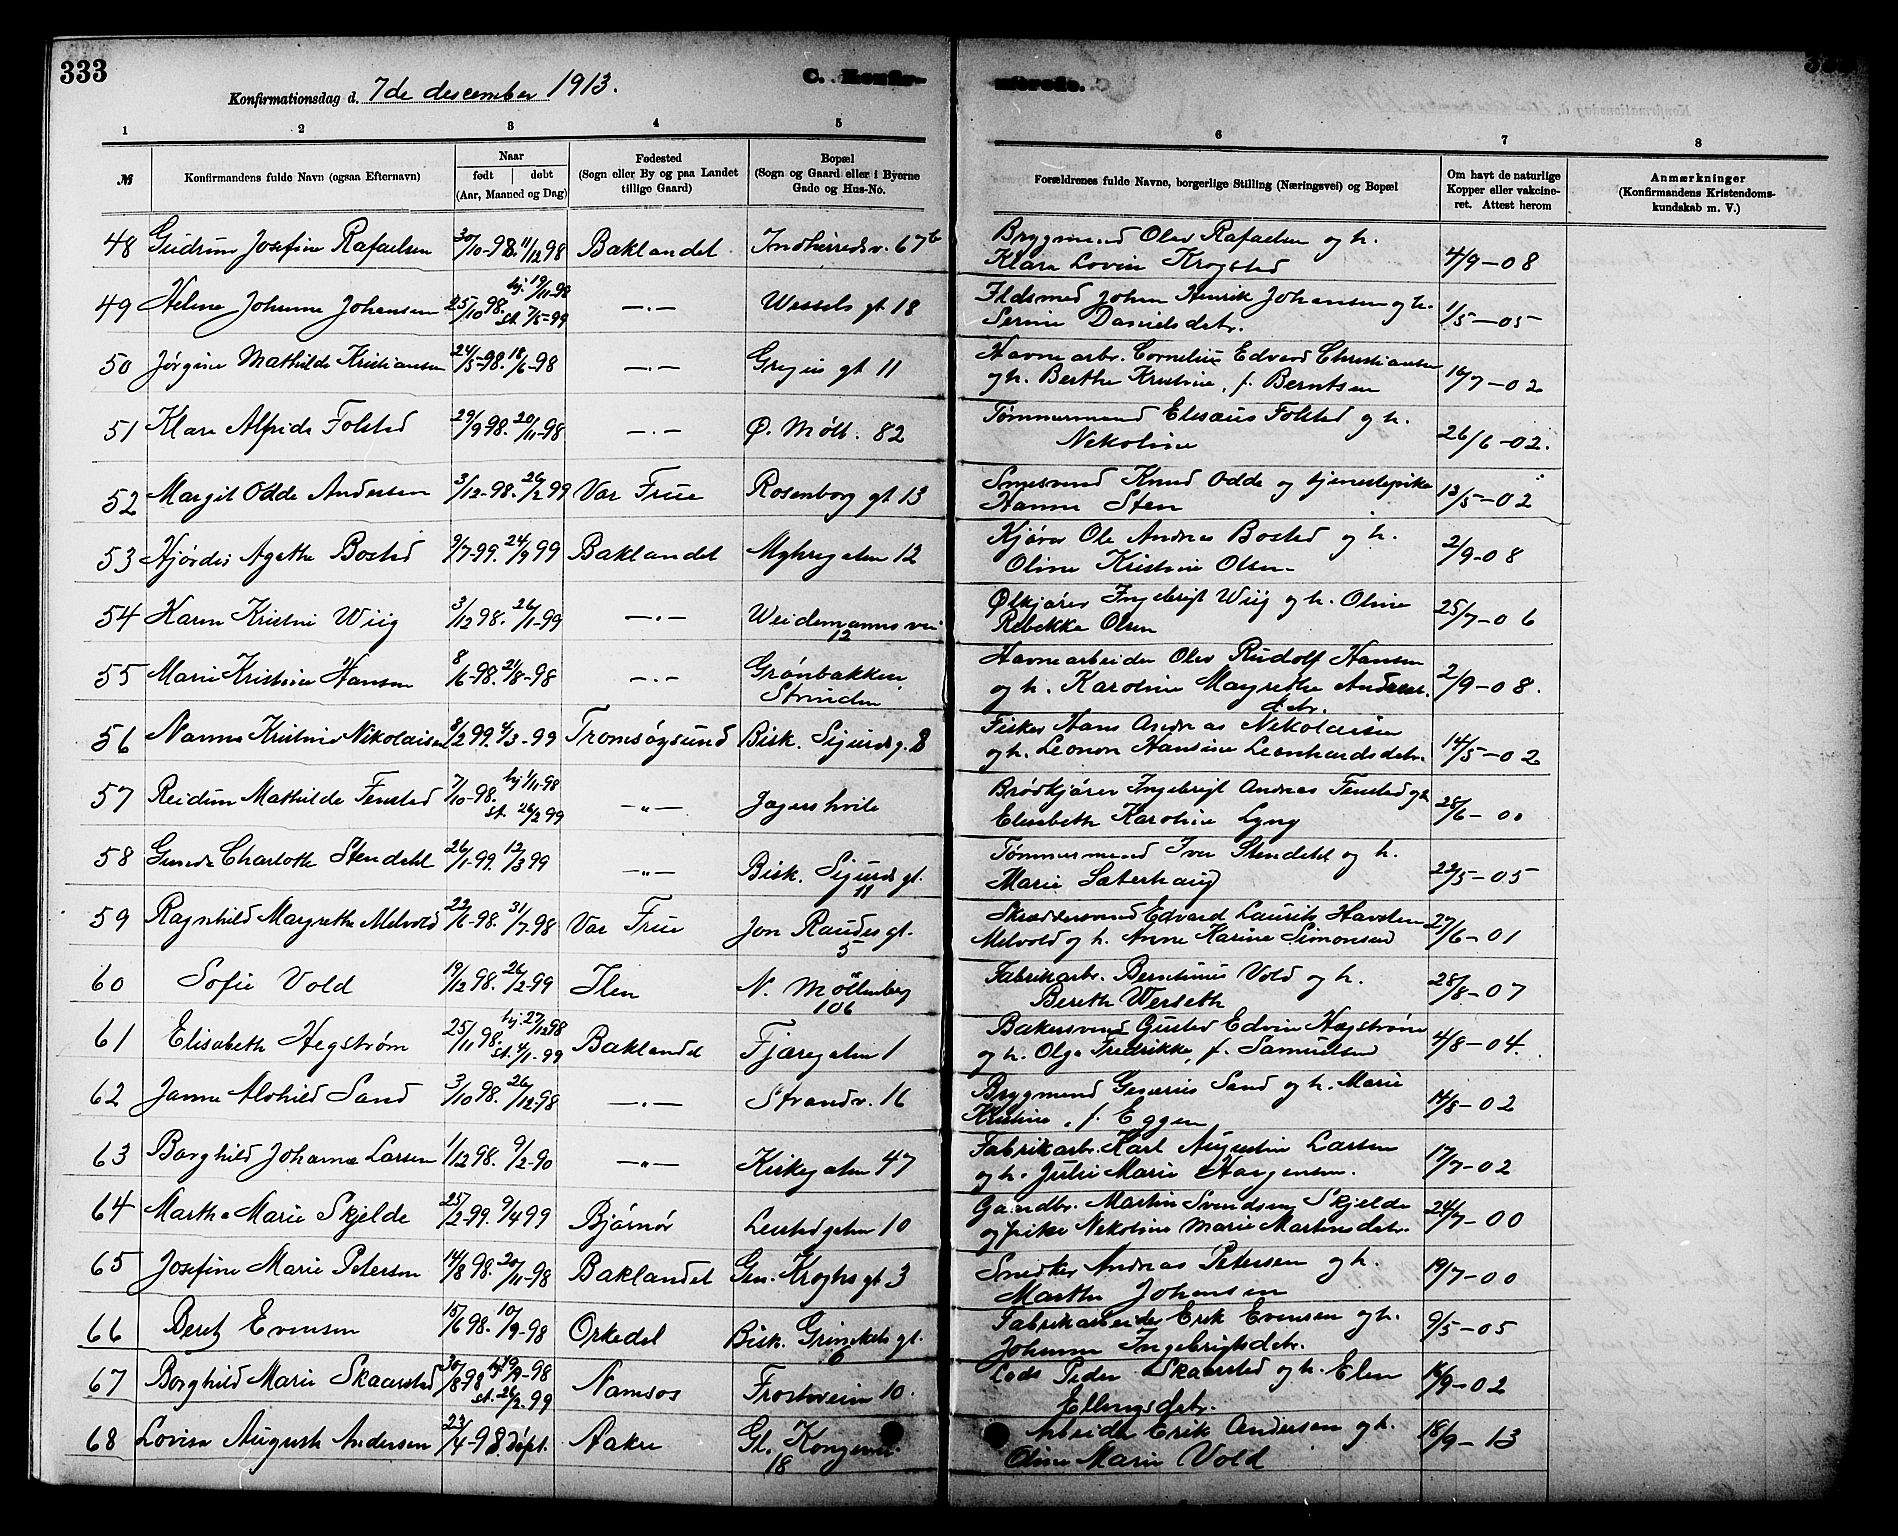 333
Konfirmationsdag d. 7de desember 1913.
C. Konfir-
merede.
1 2 3 4 5 6 7 8
№
Konfirmandens fulde Navn (ogsaa Efternavn)
Naar
født døbt
(Aar, Maaned og Dag)
Fødested
(Sogn eller By og paa Landet
tillige Gaard)
Bopæl
(Sogn og Gaard eller i Byerne
Gade og Hus-No.
Forældrenes fulde Navne, borgerlige Stilling (Næringsvei) og Bopæl
Om havt de naturlige
Kopper eller vakcine-
ret. Attest herom
Anmærkninger
(Konfirmandens Kristendoms-
kundskab m. V.)
48 Gudrun Josefine Rafaelsen 30/10-98. 11/12 98 Baklandet Indherredsv. 67b Brygmand Olav Rafaelsen og h. 4/9-08
Klara Lovise Krogstad
49 Helene Johanne Johansen 25/10 98. hj. 19/11-98 st. 7/5-99 —.— Wessels gt 18 Ildsmed Johan Henrik Johansen og h. 1/5-05
Serine Danielsdtr.
50 Jørgine Mathilde Kristiansen 24/5-98. 18/6-98 —.— Gregus gt 11 Havnearbr. Cornelius Edvard Christiansen 16/7-02
og h. Berthe Kristine, f. Berntsen
51 Klara Alfrida Folstad 29/9 98. 20/11-98 —.— Ø. Møll. 82 Tømmermand Elisæus Folstad og h. 26/6-02.
Nekoline
52 Margit Odde Andersen 3/12-98. 26/2 99 Var Frue Rosenborg gt 13 Smesvend Knud Odde og tjenestepike 12/5-02
Hanna Sten
53 Hjørdis Agathe Bostad 9/7-99. 24/9 99 Baklandet Myhregaten 12 Kjører Ole Andreas Bostad og h. 2/9-08
Oline Kristine Olsen
54 Karen Kristine Wiig 3/12 98. 26/1-99 —.— Weidemanns vei Ølkjører Ingebrigt Wiig og h. Oline 25/7-06
12 Rebekka Olsen
55 Marie Kristine Hansen 8/6-98. 21/8-98 —.— Grønbakken Havnearbeider Olav Rudolf Hansen 2/9-08.
Strinden og h. Karoline Margrethe Anders.
dtr.
56 Nanna Kristine Nikolaisen 8/2 99. 4/3-99 Tromsøysund Bisk. Sigurds g. 8 Fisker Hans Andreas Nikolaisen 14/5-02
og h. Leonor Hansine Leonhardsdtr.
57 Reidun Mathilde Fenstad 7/10-98. hj 1/11-98 st. 26/2 99 —„— Jagershvile Brødkjører Ingebrigt Andreas Fenstad og h 28/6-00
Elisabeth Karoline Lyng
58 Gunda Charlotte Stendahl 26/1-99. 12/3 99 —„— Bisk. Sigurds gt. Tømmermand Iver Stendahl og h. 22/5-05
11 Marie Saterhaug
59 Ragnhild Margrethe Melvold 22/6-98. 31/7-98 Var Frue Jon Raudes gt. Skræddersvend Edvard Laurits 27/6-01
5 Melvold og h. Anne Karine Simonsen
60 Sofie Vold 19/12 98. 26/2-99 Ilen N. Møllenberg Fabrikarbr. Berntinus Vold og h. 28/8-07
106 Bereth Werseth
61 Elisabeth Hegstrøm 25/11 98. hj. 27/12 98 st. 4/1-99 Baklandet Fjæregaten 1 Bakersvend Gustav Edvin Hægstrøm 4/8-04.
og h. Olga Fredrikke, f. Samuelsen
62 Janna Alvhild Sand 3/10 98. 26/12-98 —.— Strandv. 16 Brygmand Generius Sand og h. Marie 14/8-02
Kristine, f. Eggen
63 Borghild Johanna Larsen 1/12 98. 9/2-90 —„— Kirkegaten 47 Fabrikarbr. Karl Augustin Larsen 17/7-02
og h. Julie Marie
64 Martha Marie Skjelde 25/2-99. 9/4 99 Bjørnør Leistadgaten 10 Gaardbr. Martin Svendsen Skjelde 24/7-00
og pike Nekoline Marie Martinsdtr.
65 Josefine Marie Petersen 14/8 98. 20/11-98 Baklandet Gen. Kroghs gt 3 Snedker Andreas Petersen og h. 19/7-00
Martha Johansen
66 Beret Evensen 15/6 98. 10/9-98 Orkedal Bisk. Grimkels gt. Fabrikarbeider Erik Evensen og h. 9/5-05
6 Johanna Ingebrigtsdtr.
67 Borghild Marie Skaarstad 30/8-98 hj 19/9-98 st. 26/2 99 Namsos Frostaveien 10. Lods Peder Skaarstad og h. Elen 16/9-02
Ellingsdtr.
68 Lovisa Augusta Andersen 22/4-98 døpt. Aaker Gl. Kongevei Arbeider Erik Andersen og h. 18/9-13
18 Oline Marie Vold